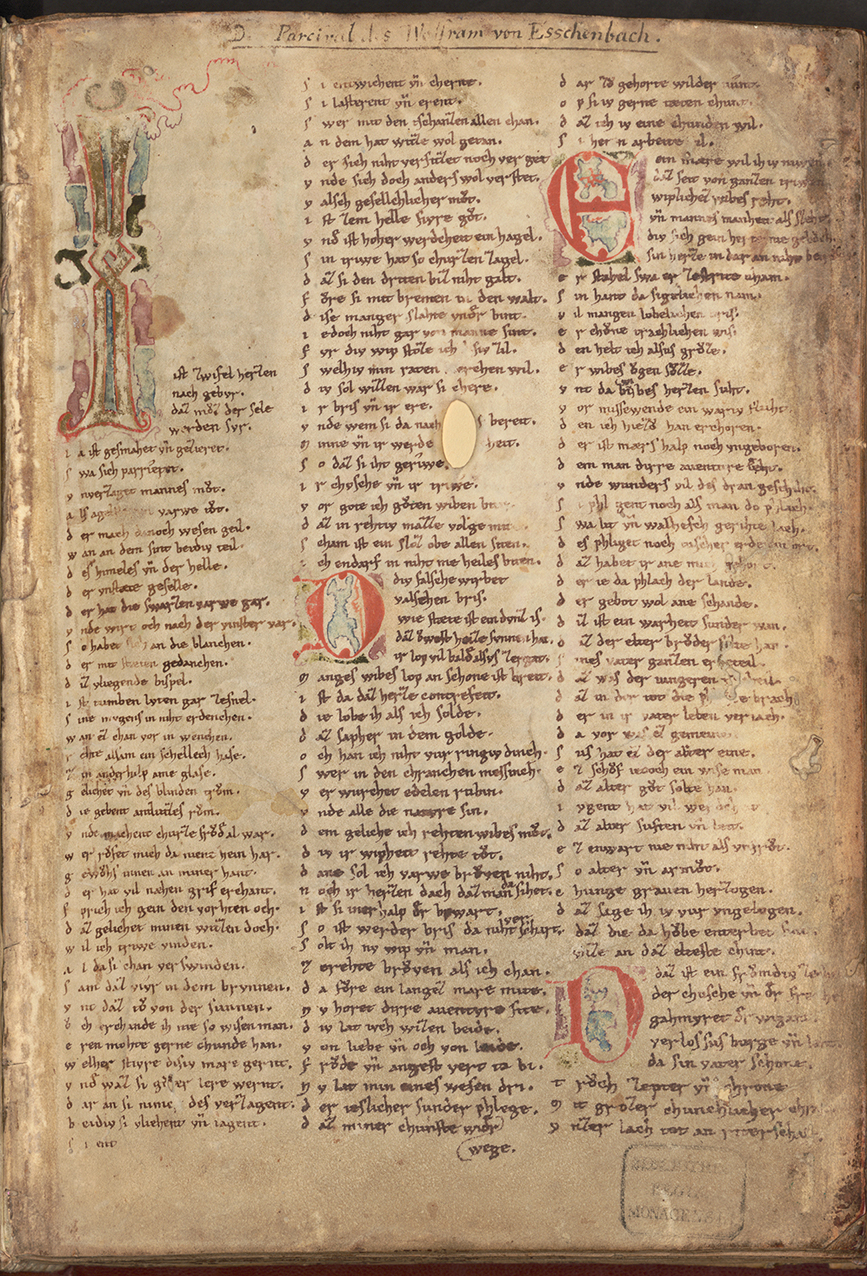 Parcival des Wolfram von Esschenbach.
ist zwifel herzen
nach gebvr.
daz mvͦz der sele
werden svr.
i a ist gesmahet vn̄ gezieret.
s wa sich parrieret.
v nverzaget mannes mvͦt.
a ls varwe tvͦt.
d er mach dannoch wesen geil.
w an an dem sint beidiv teil.
d es himeles vn̄ der helle.
d er vnstæte geselle.
d er hat die swarzen varwe gar.
v nde wirt och nach der vinster var.
s o habet an die blanchen.
d er mit stæten gedanchen.
d iz vliegende bispel.
i st tumben lvten gar zesnel.
s ine mvgens in niht erdenchen.
w an ez chan vor in wenchen.
r ehte alsam ein schellech hase.
z in anderhalp ame glase.
g elichet vn̄ des blinden trͦvm.
d ie gebent antlvtzes rͦvm.
v nde machent churze frͦvde al war.
w er rͦvfet mich da niene hein har.
g ewͦhs innen an miner hant.
d er hat vil nahen grif erchant.
s prich ich gein den vorhten och.
d az gelichet minen witzen doch.
w il ich triwe vinden.
a l da si chan verswinden.
s am daz viur in dem brvnnen.
v nt daz tͦv von der sunnen.
ͦ ch erchande ich nie so wisen man.
e ren mohte gerne chunde han.
w elher stivre disiv mære gernt.
v nd waz si gͦter lere wernt.
d ar an si nimer des verzagent.
b eidiv si vliehent vn̄ iagent.
s i ent
s i entwichent vn̄ cherent.
s i lasterent vn̄ erent.
s wer mit den schanzen allen chan.
a n dem hat witze wol getan.
d er sich niht versitzet noch verget
v nde sich doch anders wol verstet.
v alsch gesellechlicher mvͦt.
i st zem helle fivre gvͦt.
v nd ist hoher werdecheit ein hagel.
s in triwe hat so churzen zagel.
d az si den dritten biz niht galt.
f ͦre si mit bremen in den walt.
d ise manger slahte vnder bint.
i edoch niht gar von manne sint.
f vr div wip stͦze ich disiv zil.
s welhiv min raten merchen wil.
d iv sol wizzen war si chere.
i r bris vn̄ ir ere.
v nde wem si da nach si bereit.
m inne vn̄ ir werdecheit.
s o daz si iht geriwe.
i r chvsche vn̄ ir triwe.
v or gote ich gvͦten wiben bite
d az in rehtiv mazze volge mite.
s cham ist ein sloz obe allen siten.
i ch endarf in niht me heiles biten.
div falsche wirbet
valschen bris.
wie stæte ist ein dvnniz is.
daz ͦvgest heize sunnen hat.
ir lop vil balde alsvs zergat.
m anges wibes lop an schone ist breit.
i st da daz herze contrefeit.
d ie lobe ih als ich solde.
d az sapher in dem golde.
i ch han ich niht vur ringiv dinch.
s wer in den chranchen messinch.
v erwurchet edelen rubin.
v nde alle die natvre sin.
d em geliche ich rehten wibes mvͦt.
d iv ir wipheit rehte tͦt.
d ane sol ich varwe brvͤven niht.
n och ir herzen dach daz man siht.
i st si inerhalp der bewart.
s o ist werder bris da niht verschart.
s olt ih nv wip vn̄ man.
z erehte brvͤven als ich chan.
d a fͦre ein langez mære mite.
n v horet dirre aventvre site.
d iv lat wh wizzen beide.
v on liebe vn̄ och von leide.
f rͦvde vn̄ angest vert ta bi.
n v lat min eines wesen dri.
d er ieslicher sunder phlege.
d az miner chunste wider
wege.
d ar zvͦ gehorte wilder funt.
o p si iv gerne tæten chunt.
d az ich iv eine chunden wil.
s i heten arbeite vil.
ein mære wil ih iv niwen.
daz seit von ganzen triwen
wiplichez wibes reht.
vn̄ mannes manheit als sleht.
div sich gein herte nie geboch
sin herze in dar an niht betroch
e r stahel swa er ze strite cham.
s in hant da sigelichen nam.
v il mangen lobelichen bris.
e r chͦne trachlichen wis.
d en helt ich alsus grͦze.
e r wibes ͦgen sͦzze.
v nt da bi wibes herzen suht.
v or missewende ein wariv fluht.
d en ich hiezͦ han erchoren.
d er ist mærs halp noch vngeboren.
d em man dirre aventvre giht.
v nde wunders vil des dran geschiht.
s i phlegent noch als man do phlach.
s wa lit vn̄ walhesch gerihte lach.
d es phliget noch tiuscher erde ein ort.
d az habet ir ane mich gehort.
d er ie da phlach der lande.
d er gebot wol ane schande.
d iz ist ein warheit sunder wan.
d az der elter brvͦder solte han
s ines vater ganzen erbeteil.
d az was der iungeren vnheil.
d az in der tot die phlihte brach
d er in ir vater leben veriach.
d a vor was ez gemeine.
s us hat ez der alter eine.
e z schͦf iedoch ein wise man.
d az alter gͦt solte han.
i vgent hat vil werdecheit
d az alter siuften vn̄ leit.
e z enwart nie niht als vnfrvͦt.
s o alter vn̄ armvͦt.
c hunge graven herzogen.
d az sage ih iv fur vngelogen.
daz die da hͦbe enterbet sint
vnze an daz elteste chint.
daz ist ein frͦmdiv
der chusche vn̄ der
gahmvret der wigant.
verlos sus burge vn̄ lant
da sin vater schone.
t rͦch zepter vn̄ chrone
m it grozer chunchlicher
v nzer lach tot an riterschaft
BIBLIOTHECA
REGIA
MONACENSIS